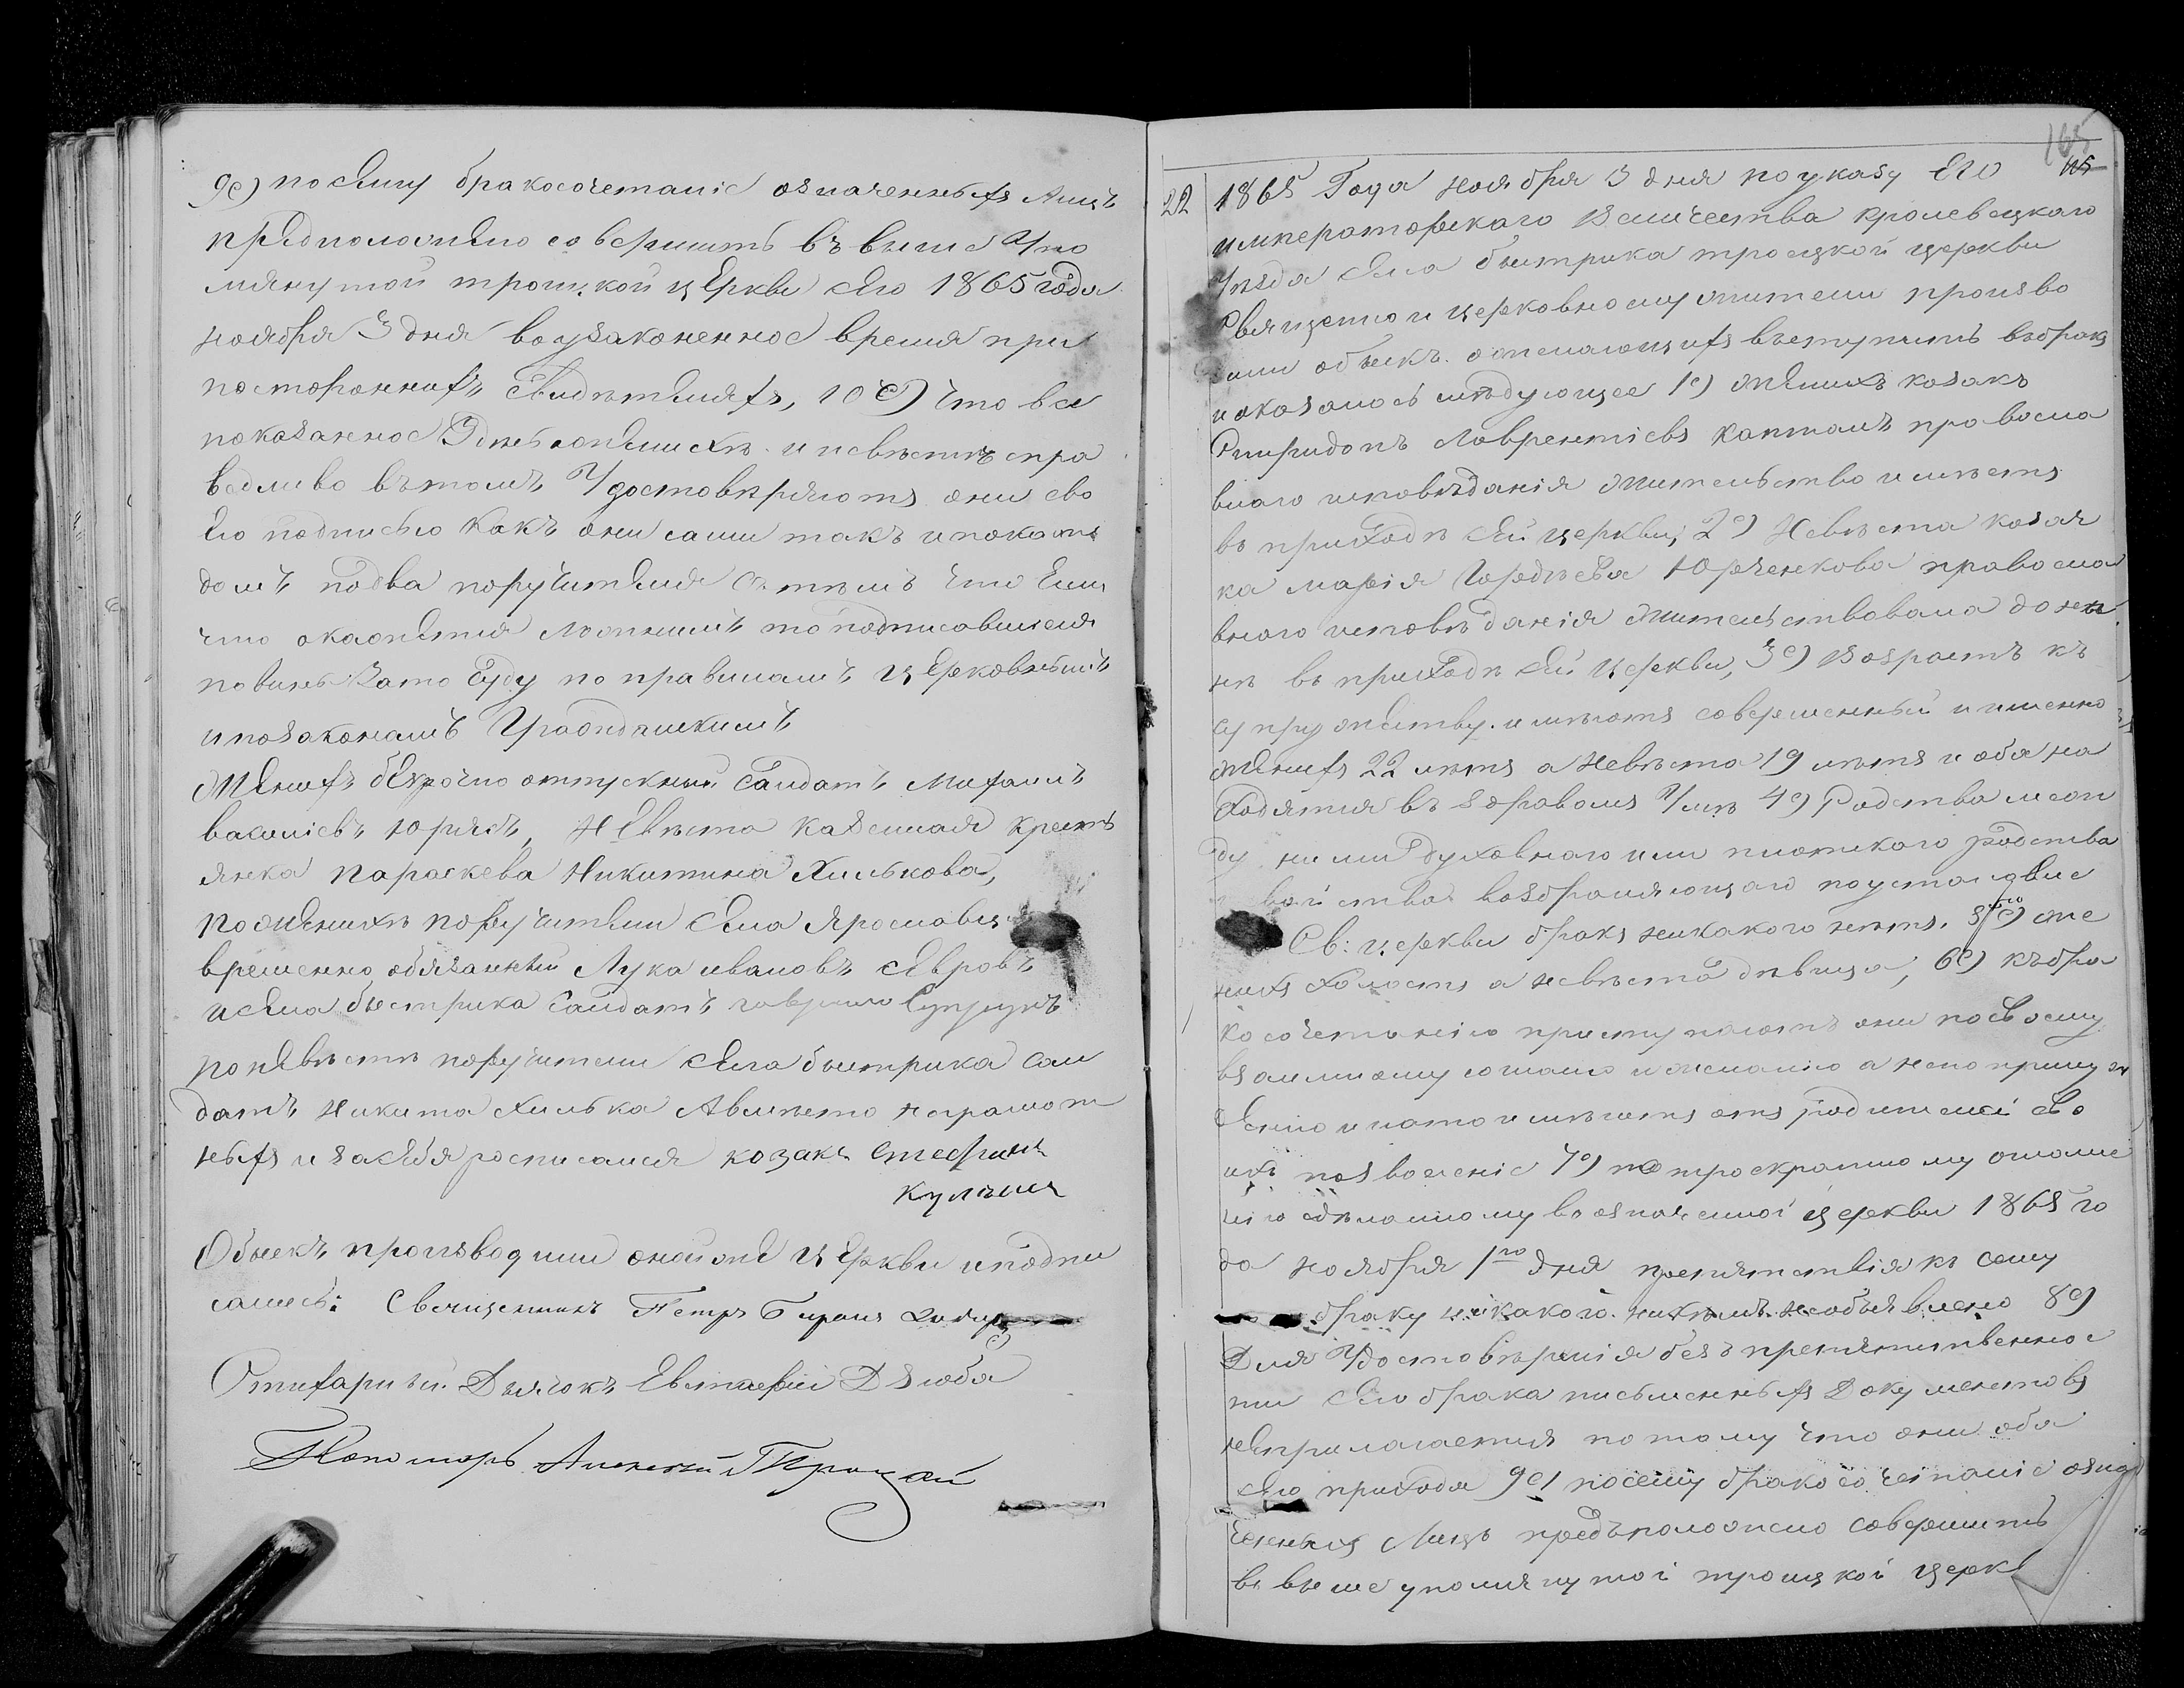 9е) по сему бракосочетаніе означенныхъ лицъ
предположено совершить въ выше упо
мянутой троицкой церкви сего 1865 года
ноября 3 дня воузаконенное время при
постороннихъ свидѣтеляхъ, 10е) Что все
показанное здѣсь оженихѣ и невѣстѣ спра
ведливо вътомъ удостовѣряютъ они сво
ею подписью какъ они сами такъ ипокаж
домъ подва поручителя съ тѣмъ что Если
что окажется ложнымъ то подписавшіеся
повинны зато суду по правиламъ церковнымъ
ипозаконамъ Гражданскимъ
Женихъ безсрочно отпускный салдатъ Михаилъ
василіевъ юрикъ, Невѣста казенная крестъ
янка параскева Никитина Хилькова,
поженихѣ поручители села Ярославца
временно обязанный Лука ивановъ
исела быстрика салдатъ гаврило Супрунъ
поневѣстѣ поручители села быстрика сал
датъ Никита Хилька Авмѣсто неграмот
ныхъ и засебя росписался козакъ Стефанъ
Обыскъ производили оной же церкви иподпи
салесь: Священникъ Петръ
Стихарный Дьячокъ Евстафій Дзюба
Пономарь Алексѣй Троцкой
165
22
1865 Года ноября 3 дня по указу Его
императорскаго Величества кролевецкаго
уѣзда села быстрика троецкой церкви
Священно и церковнослужители произво
дили обыскъ ожелающихъ вступить вбракъ
иоказалось слѣдующее 1е) женихъ козакъ
Спиридонъ Лаврентіевъ каптанъ правосла
внаго исповѣданія жительство имѣетъ
въ приходѣ сей церкви, 2е) Невѣста козач
ка марія Гордѣева Юрченкова правосла
вного исповѣданія жительствовала донын
нѣ въ приходѣ сей церкви, 3е) Возрастъ къ
супружеству имѣютъ совершенный иименно
женихъ 22 лѣтъ а невѣста 19 лѣтъ и оба на
ходятся въ здравомъ умѣ 4е) Родства меж
ду ними духовного или плотского родства
и свойства возбраняющаго поустановле
Св: церкви бракъ никакого нѣтъ. 5е) же
нихъ холостъ а невѣста дѣвица, 6е) къбра
косочетанію приступаютъ они посвоему
взаимному согласію ижеланію а непопринуж
денію инато имѣютъ отъ родителей сво
ихъ позволеніе 7е) по троекратному оглаше
нію сдѣланному возначенной церкви 1865 го
да ноября 1го дня препятствія къ сему
браку никакого никѣмъ необъявлено 8е)
Для удостовѣренія безъпрепятственнос
ти сего брака письменныхъ документовъ
неприлагается потому что они оба
сего прихода 9е) посему бракосочетаніе озна
ченныхъ Лицъ предъположено совершить
въ выше упомянутой троицкой церк